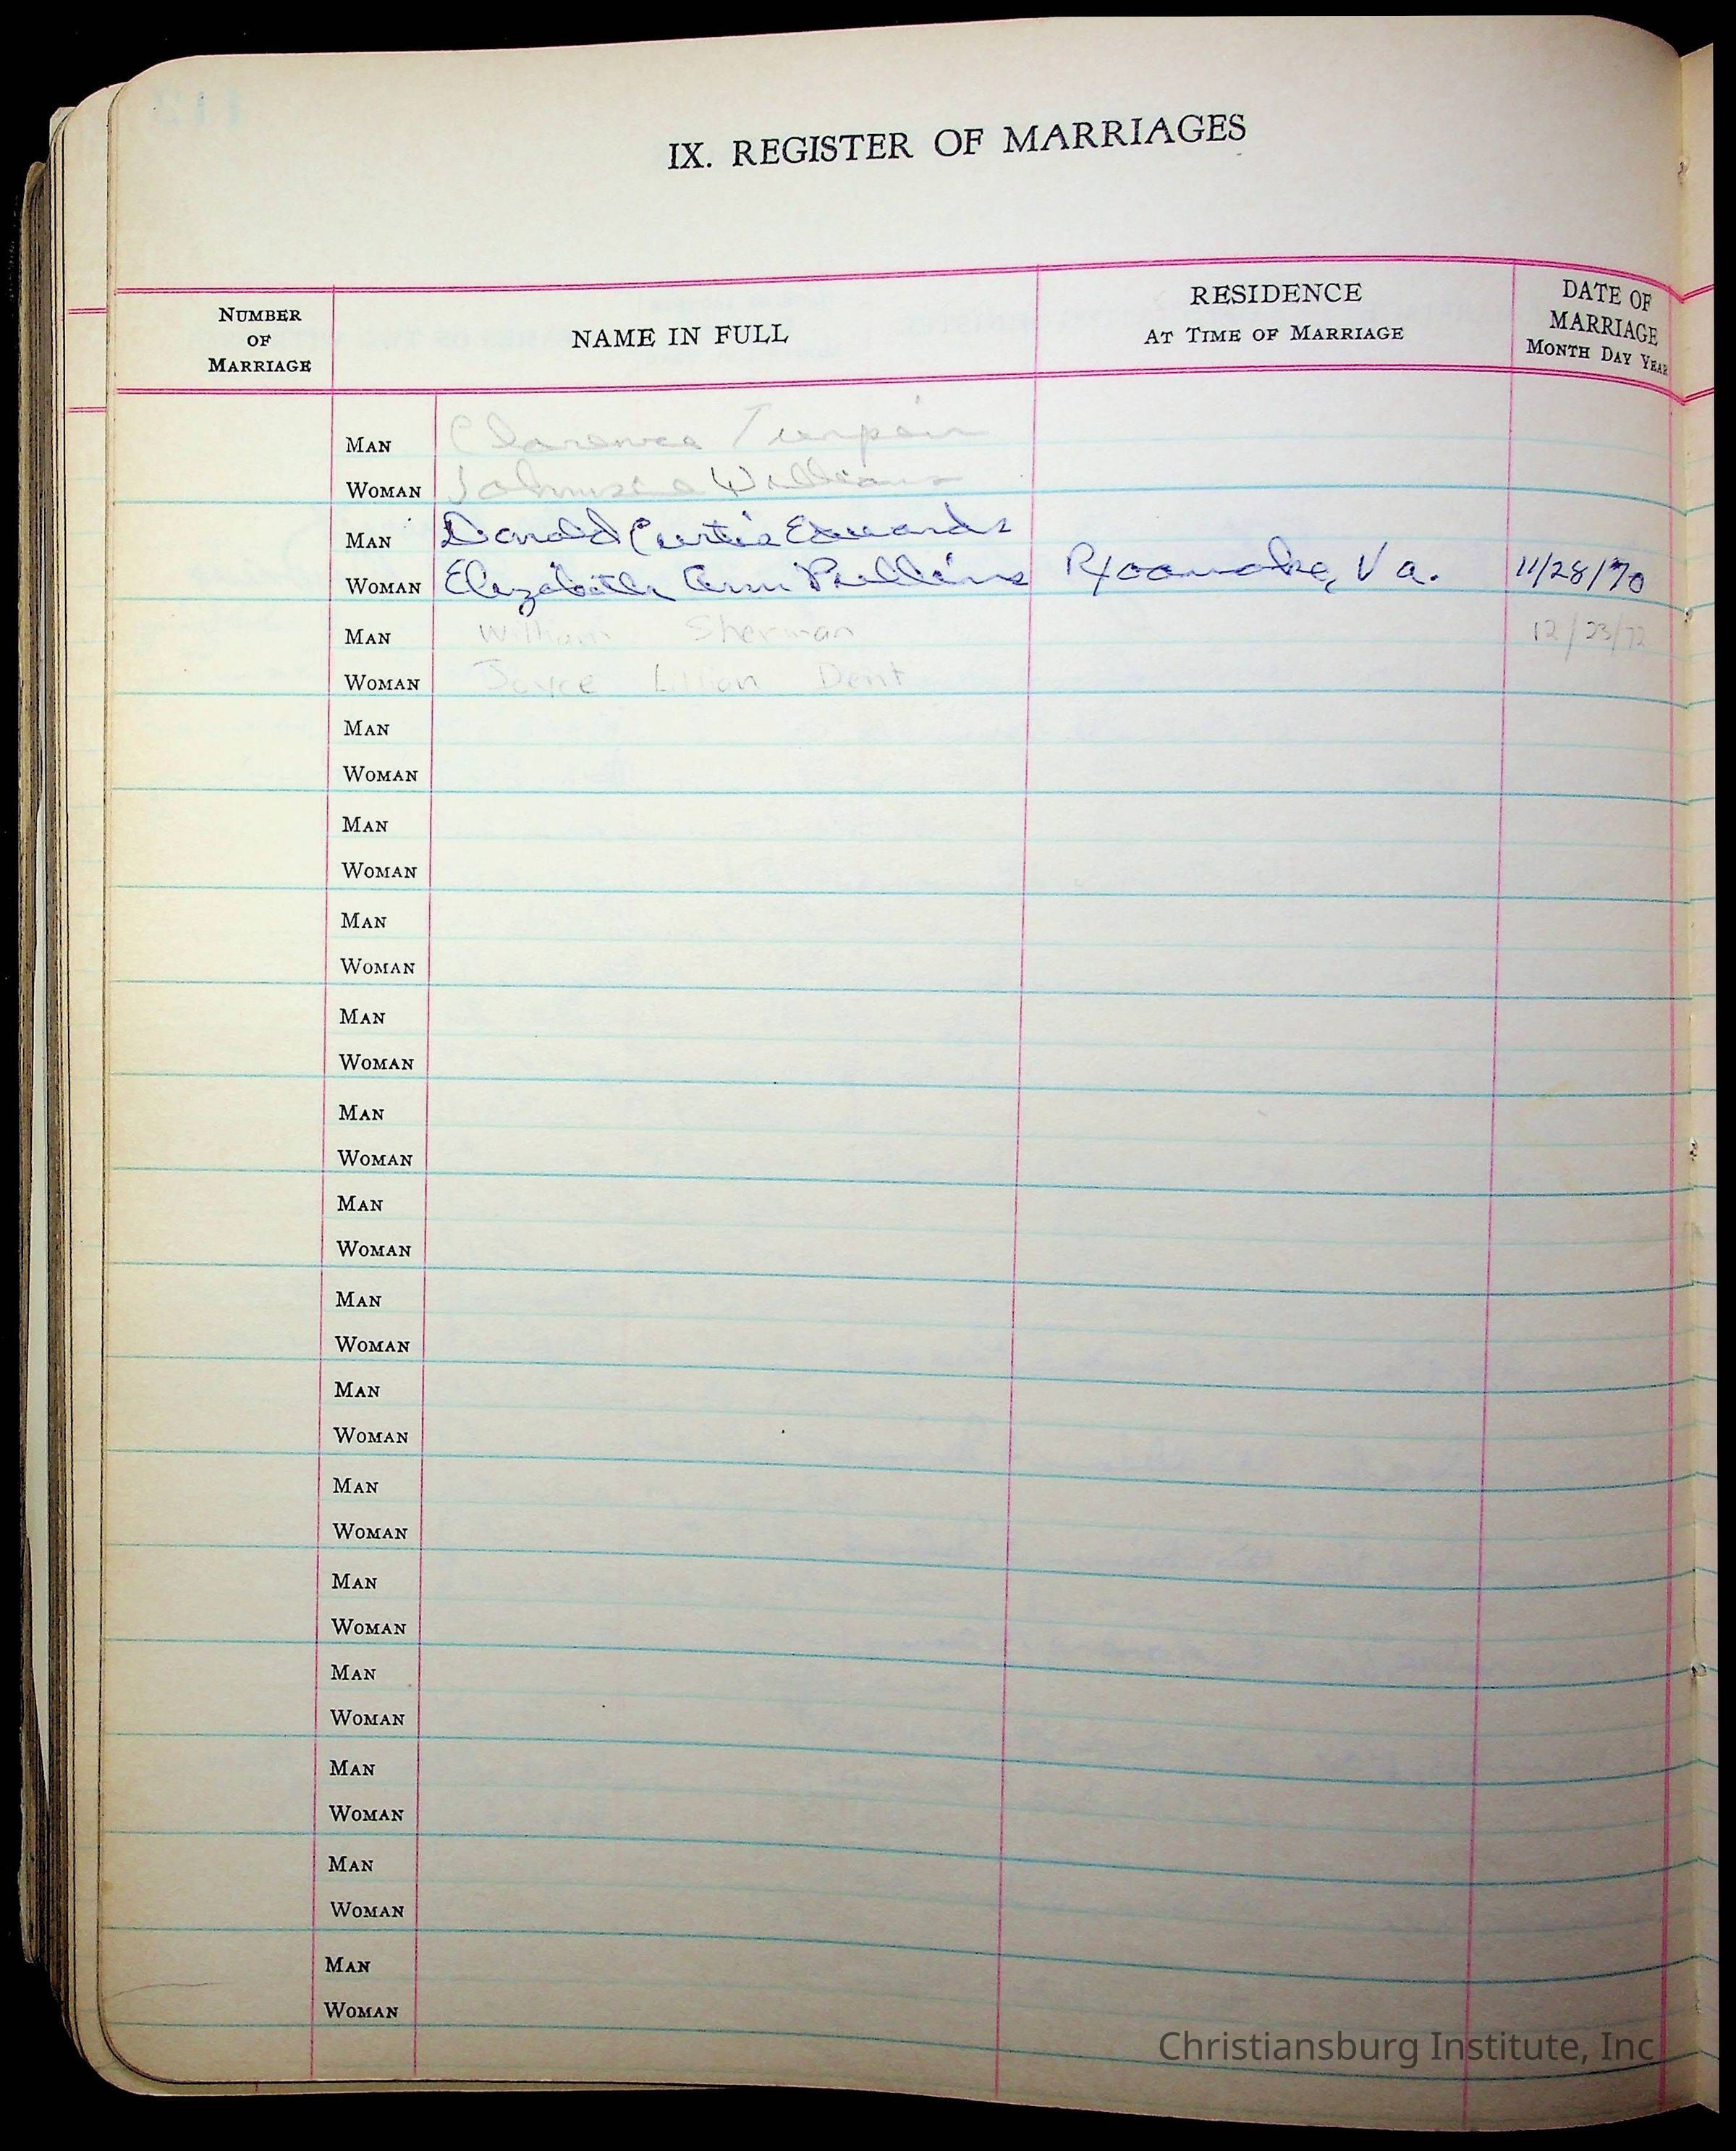 IX. REGISTER OF MARRIAGES
NUMBER OF MARRIAGE
NAME IN FULL
RESIDENCE
AT TIME OF MARRIAGE
DATE OF MARRIAGE
MONTH DAY YEAR
MAN Clarence Turpin
WOMAN Williams
MAN Donald Curtis Edwards
WOMAN Elizabeth Ann Pullins Roanoke, Va. 11/28/70
MAN William Sherman 12/23/72
WOMAN Joyce Lillian Dent
MAN
WOMAN
MAN
WOMAN
MAN
WOMAN
MAN
WOMAN
MAN
WOMAN
MAN
WOMAN
MAN
WOMAN
MAN
WOMAN
MAN
WOMAN
MAN
WOMAN
MAN
WOMAN
MAN
WOMAN
MAN
WOMAN
MAN
WOMAN
Christiansburg Institute, Inc